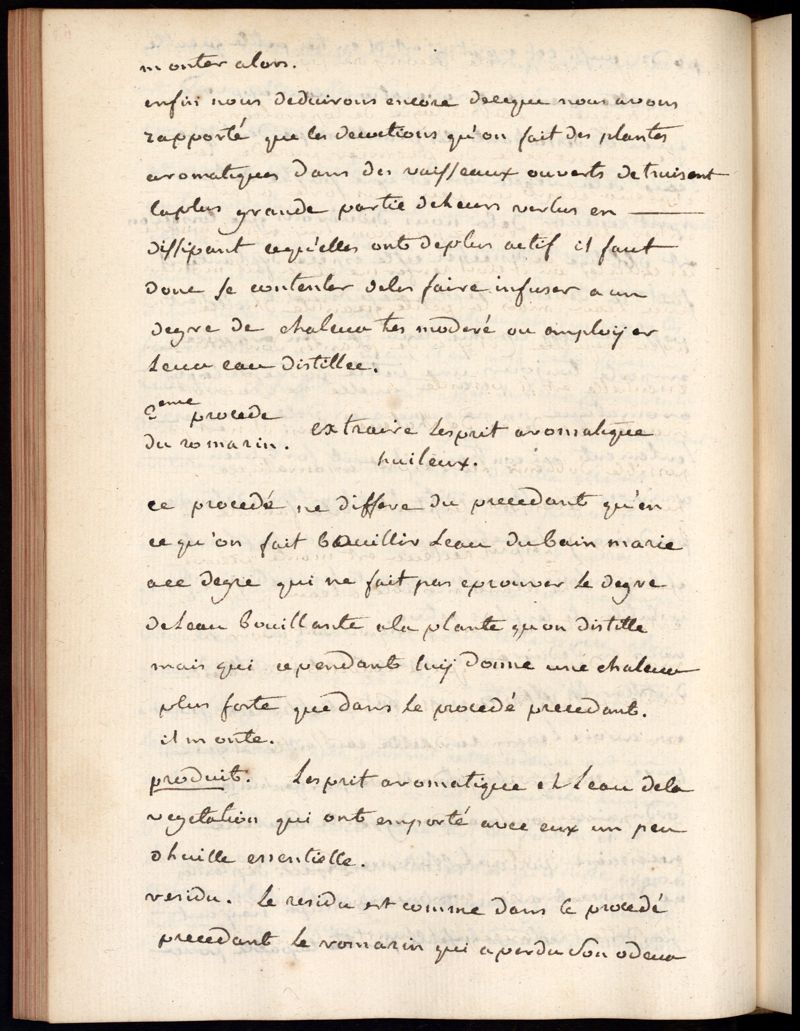 monter alors.
enfin nous deduirons encore deceque nous avons
rapporté que les decoctions qu'on fait des plantes
aromatiques dans des vaisseaux ouverts detruisent
laplus grande partie deleurs vertus en
dissipant cequ'elles ont deplus actif il faut
donc se contenter deles faire infuser a un
degre de chaleur tes moderé ou employer
Leur eau distillee.
2eme procede
du romarin. extraire Lesprit aromatique
huileux.
ce procedé ne differe du precedant qu'en
ce qu'on fait bouillir Leau du bain marie
a ce degre qui ne fait pas eprouver Le degre
deLeau bouillante ala plante quon distille
mais qui cependant luy donne une chaleur
plus forte que dans Le procedé precedant.
il monte.
produit. Lesprit aromatique et Leau dela
vegetation qui ont emporté avec eux un peu
dhuille essentielle.
residu. Le residu est comme dans le procedé
precedant Le romarin qui a perdu son odeur